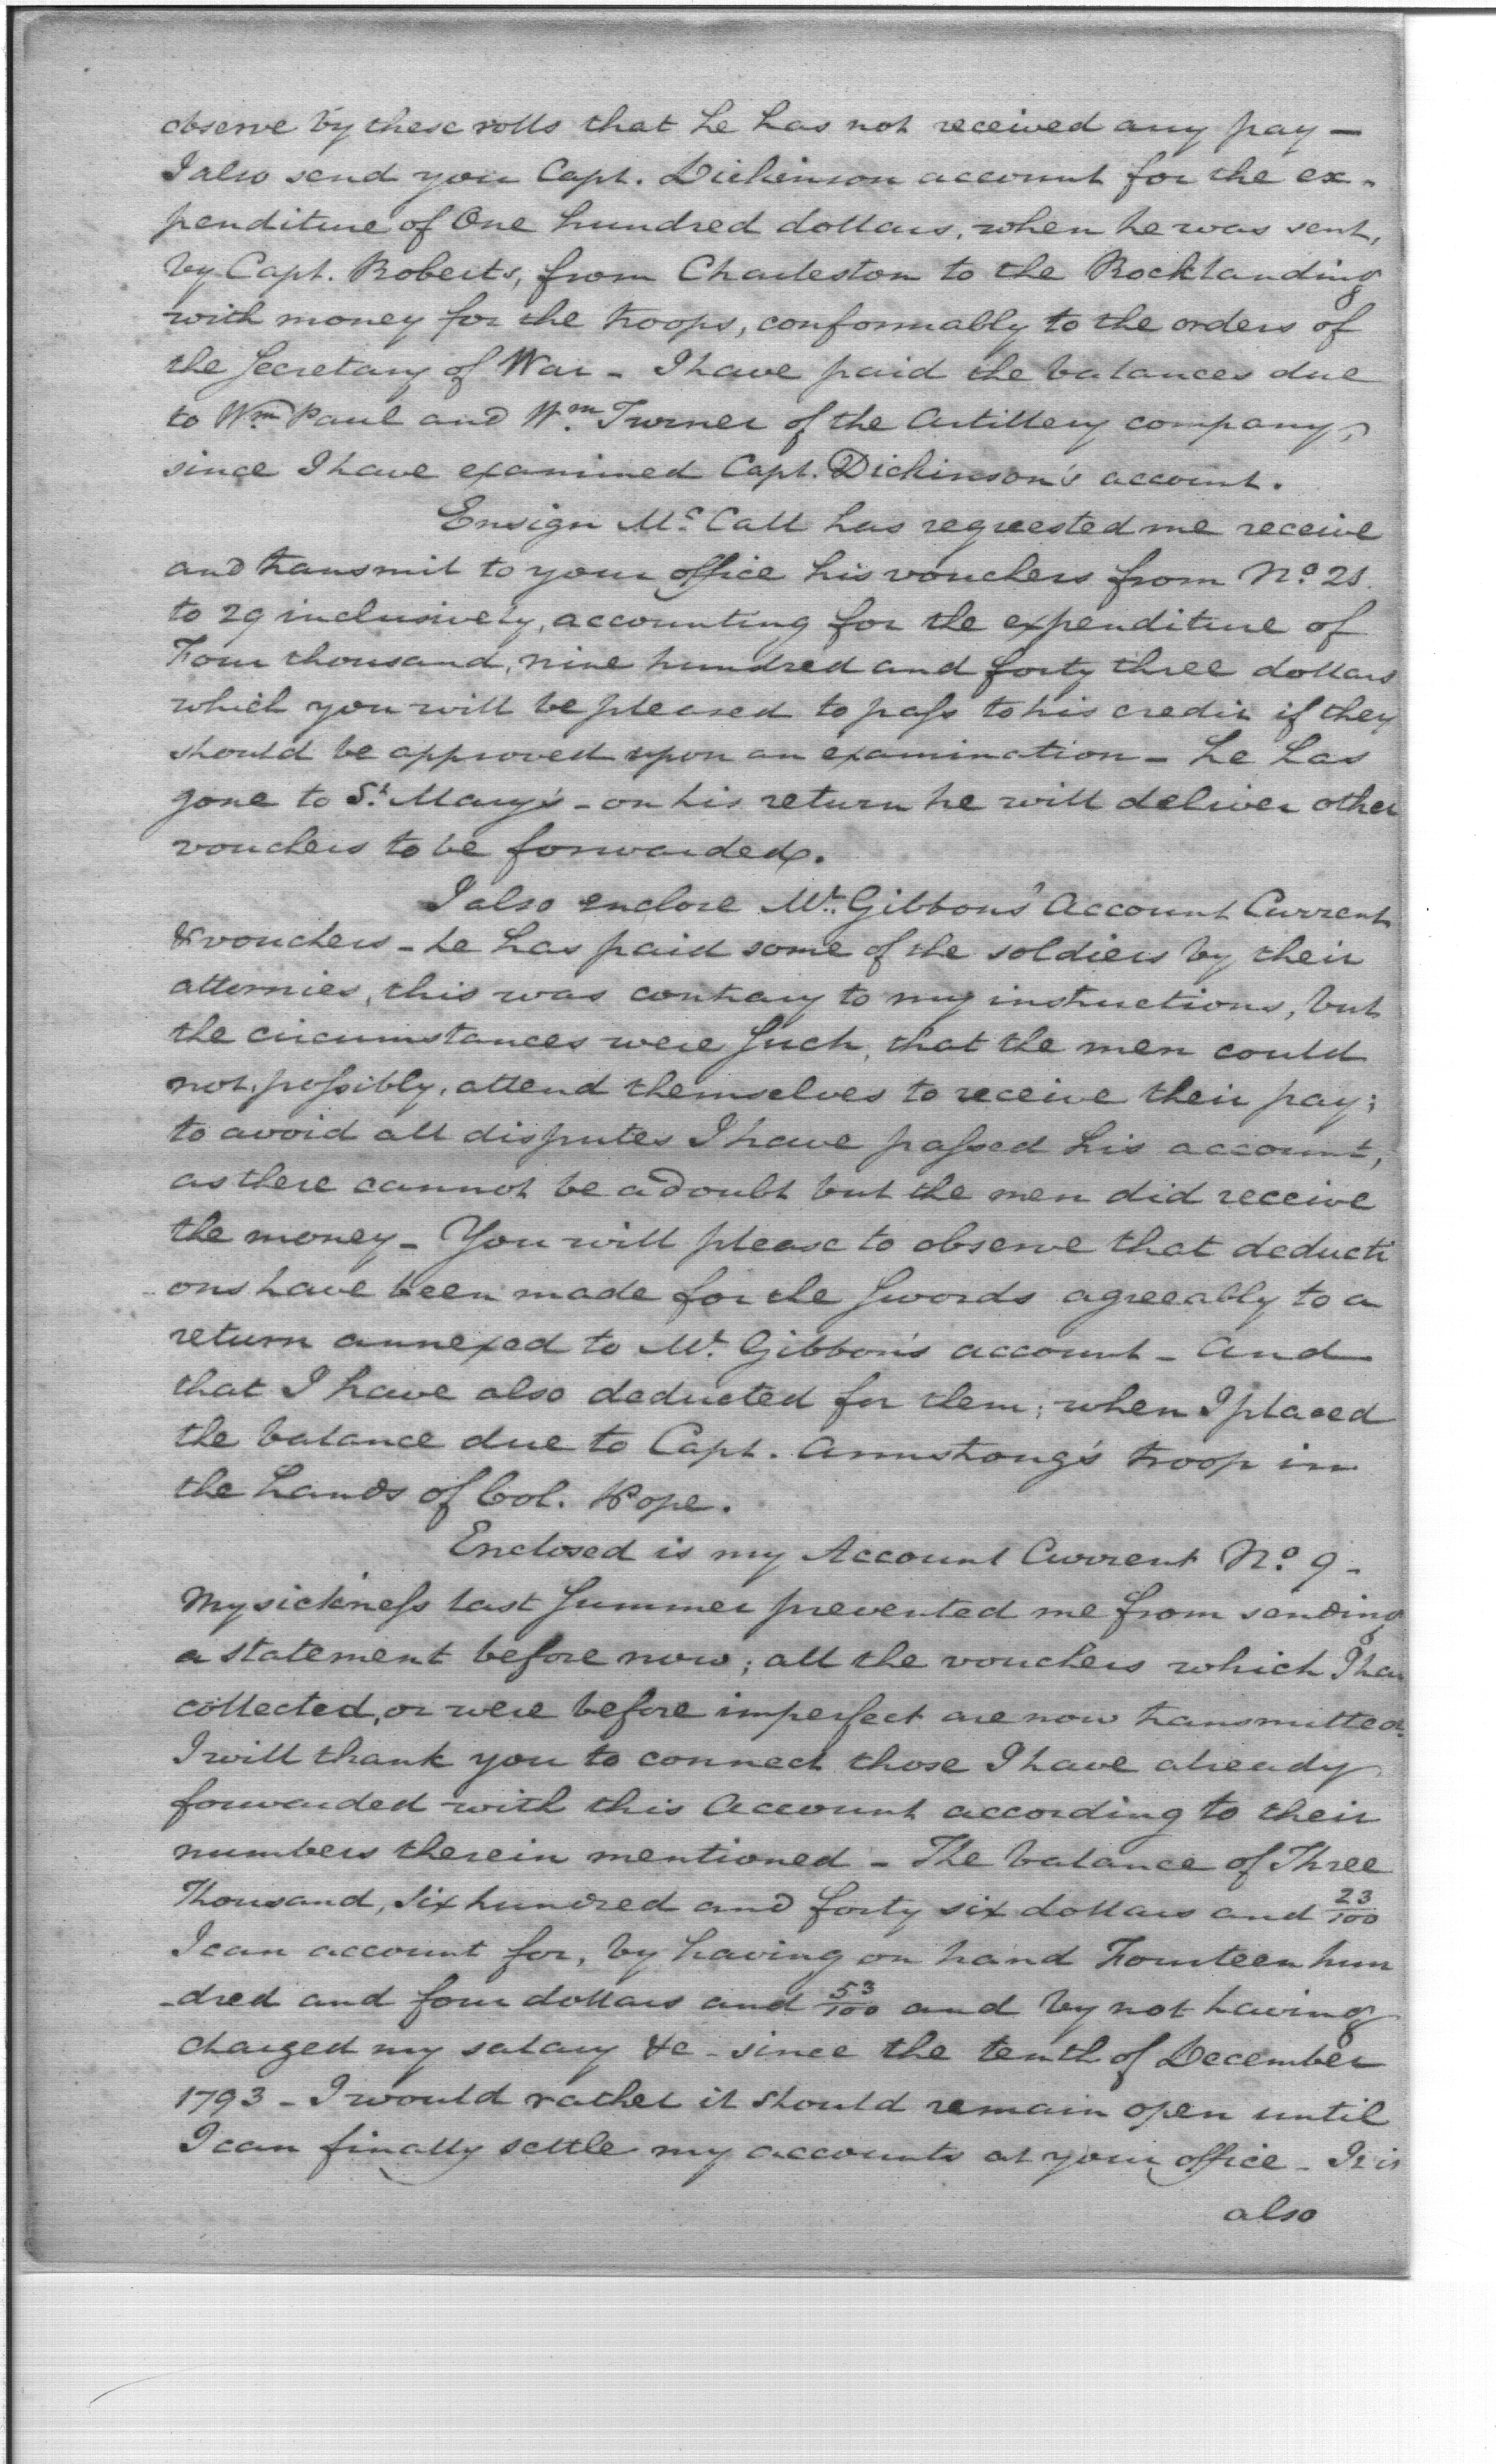 observe by these rolls that he has not received any pay —
I also send you Capt. Dickinson account for the ex-
penditure of One hundred dollars, when he was sent,
by Capt. Roberts, from Charleston to the Rocklanding
with money for the troops, conformably to the orders of
the Secretary of War - I have paid the balances due
to Wm Paul and Wm Turner of the Artillery company,
since I have examined Capt. Dickinson's account.
Ensign Mc Call has requested me receive
and transmit to your office his vouchers from No. 21
to 29 inclusively, accounting for the expenditure of
Four thousand, nine hundred and forty three dollars
which you will be pleased to pass to his credit if they
should be approved upon an examination - he has
gone to St. Mary's - on his return he will deliver other
vouchers to be forwarded.
I also enclose Mr. Gibbons' Account Current
& vouchers - he has paid some of the soldiers by their
attornies, this was contrary to my instructions, but
the circumstances were such, that the men could
not, possibly, attend themselves to receive their pay;
to avoid all disputes I have passed his account,
as there cannot be a doubt but the men did receive
the money - You will please to observe that deducti
ons have been made for the swords agreeably to a
return annexed to Mr. Gibbon's account - And
that I have also deducted for them; when I placed
the balance due to Capt. Armstrong's troop in
the hands of Col. Pope.
Enclosed is my Account Current No. 9 -
My sickness last summer prevented me from sending
a statement before now; all the vouchers which I ha
collected, or were before imperfect are now transmitted.
I will thank you to connect those I have already
forwarded with this Account according to their
numbers therein mentioned - The balance of Three
Thousand, six hundred and forty six dollars and 23/100
I can account for, by having on hand Fourteen hun
-dred and four dollars and 53/100 and by not having
charged my salary &c - since the tenth of December
1793 - I would rather it should remain open until
I can finally settle my accounts at your office - It is
also